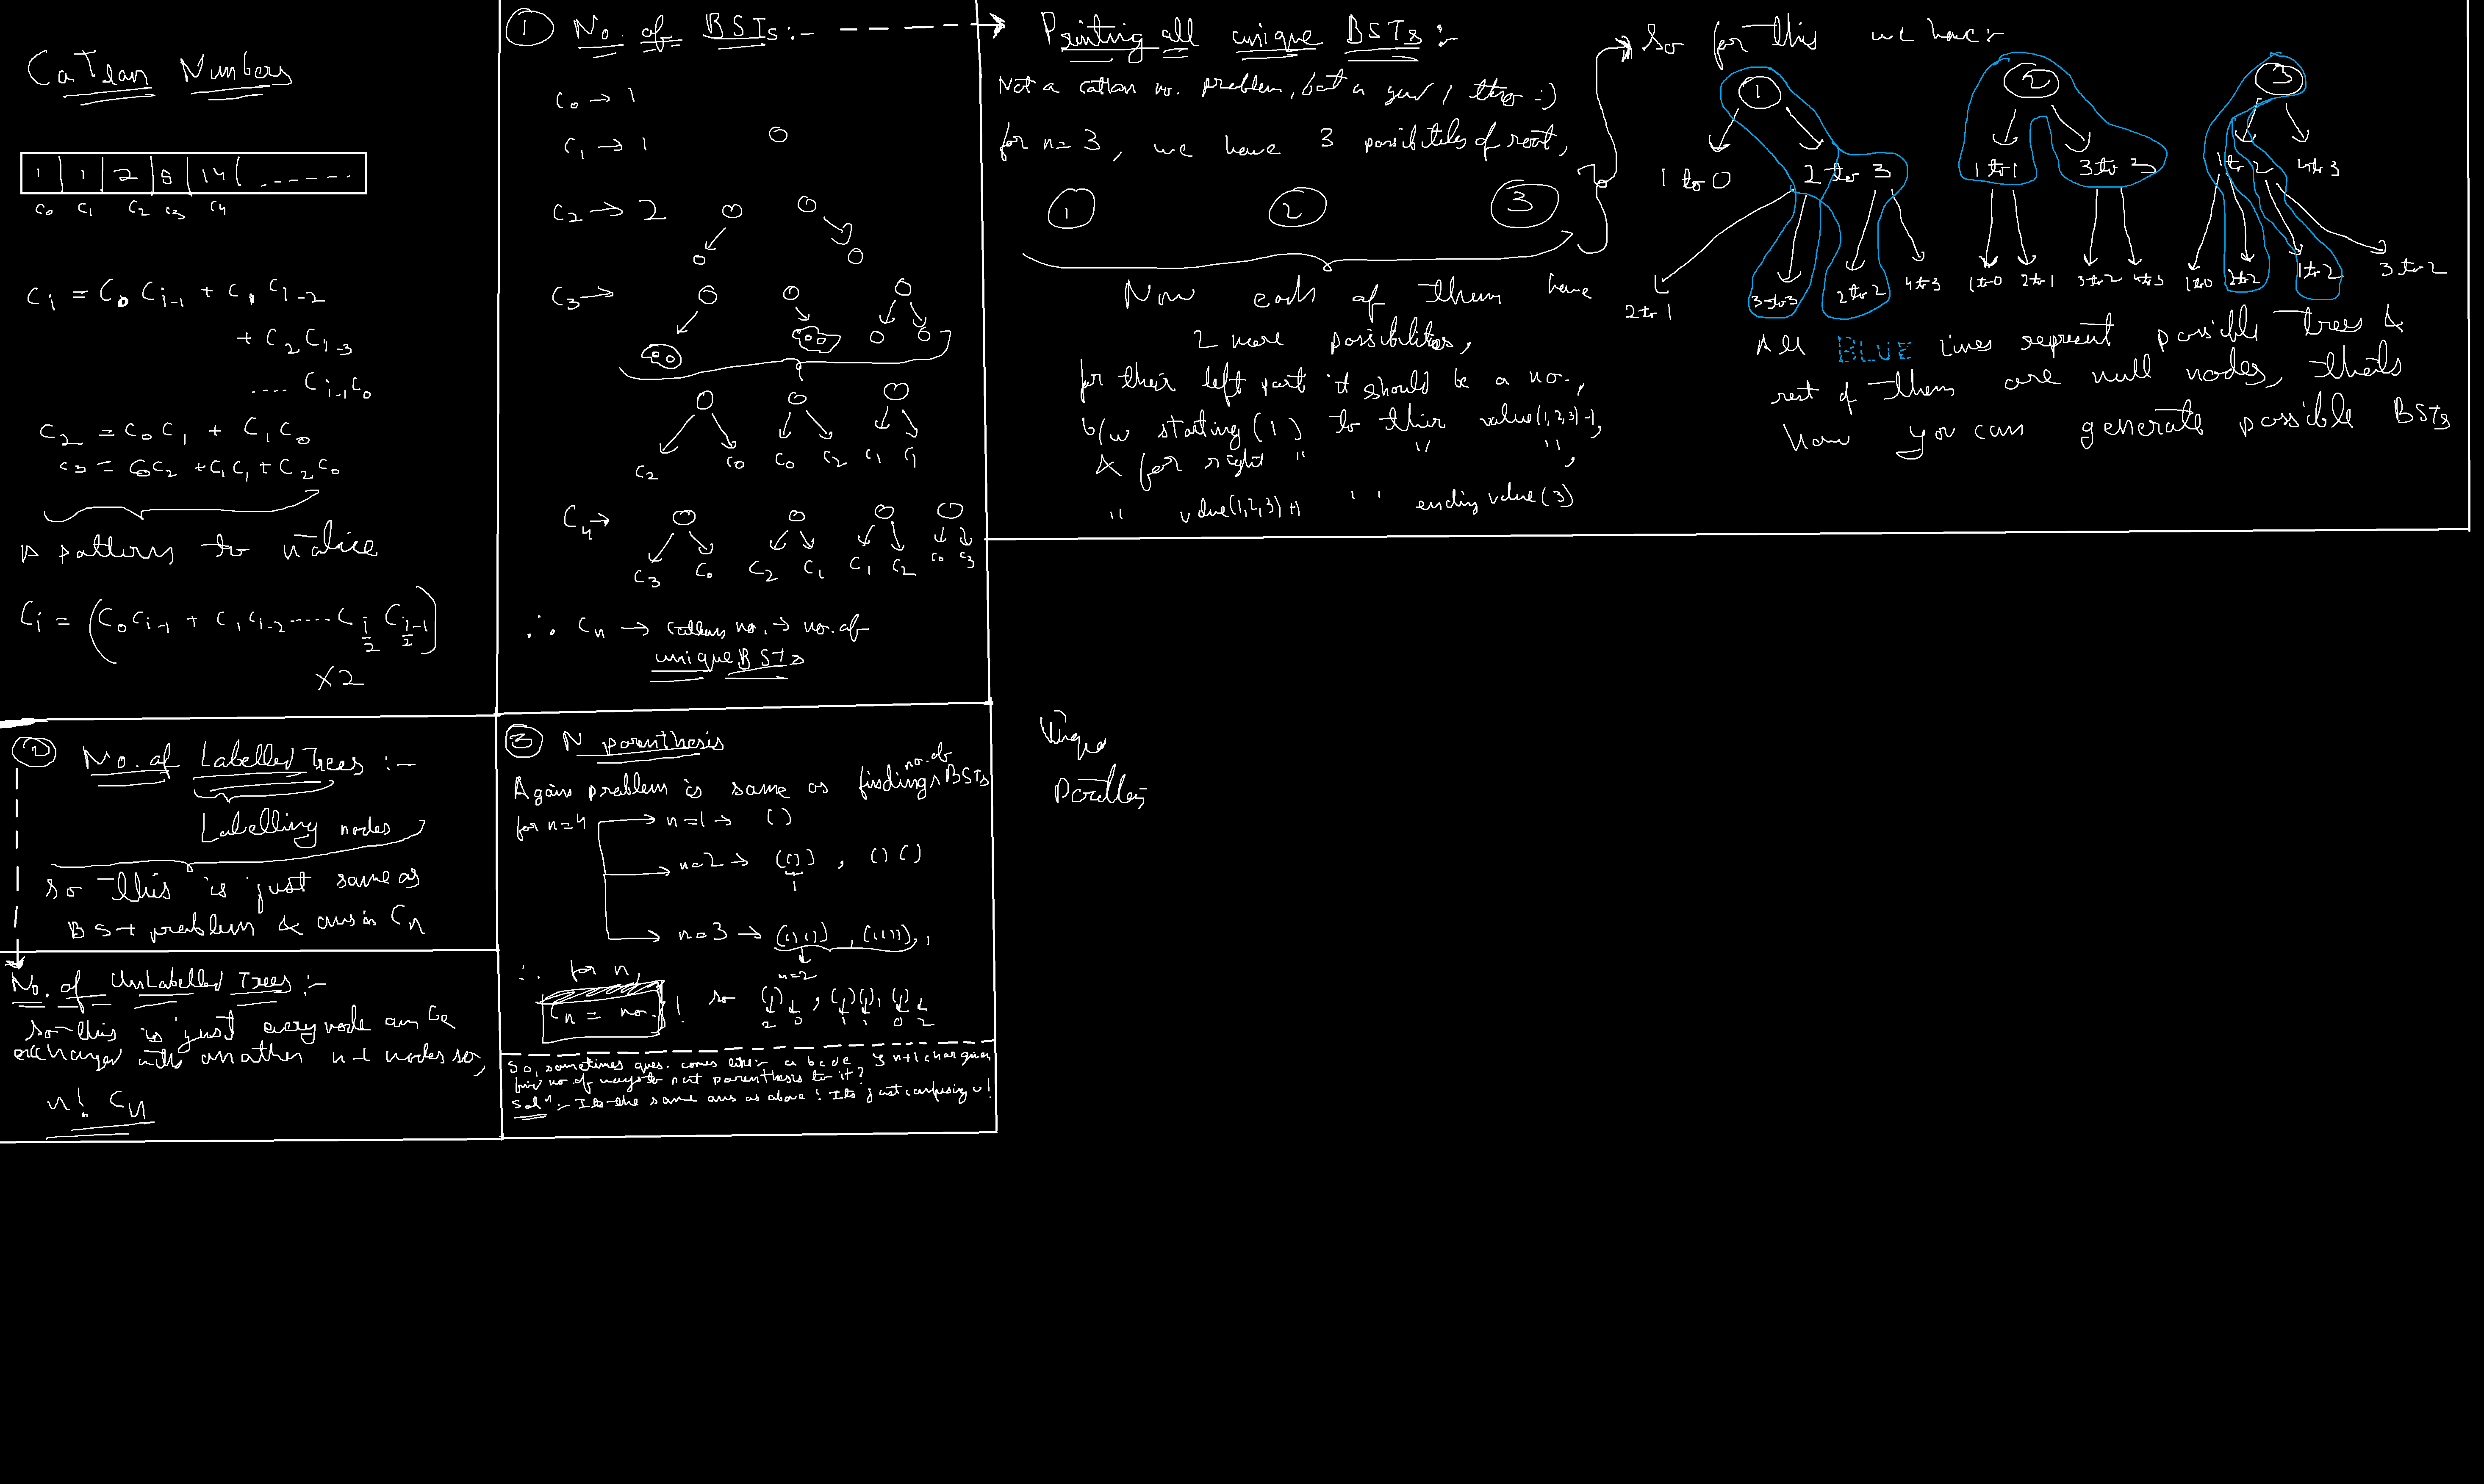 CaTlan Numbers
1 1 2 5 14 ......
C0 C1 C2 C3 C4
Ci = C0 Ci-1 + C1 Ci-2
+ C2 Ci-3
.... Ci-1 C0
C2 = C0C1 + C1C0
C3 = C0C2 + C1C1 + C2C0
A pattern to notice
Ci = (C0Ci-1 + C1Ci-2 ..... C i/2 C i-1/2)
X2
1 No. of BSTs :-
C0 → 1
C1 → 1
C2 → 2
C3 →
C2 C0 C0 C2 C1 C1
C4 →
C3 C0 C2 C1 C1 C2 C0 C3
∴ Cn → catlan no. → no. of
unique BSTs
Printing all unique BSTs :-
Not a catlan no. problem, but a good 1 tho :)
for n = 3, we have 3 possibitiles of root,
1 2 3
Now each of them have
2 more possibilites,
for their left part it should be a no.,
b/w starting (1) to their value(1,2,3)-1,
& for right " " ",
" value(1,2,3)+1 " " ending value(3)
So for this we have :-
1 2 3
1 to 0 2 to 3 1 to 1 3 to 3 1 to 2 4 to 3
2 to 1 3 to 3 2 to 2 4 to 3 1 to 0 2 to 1 3 to 2 4 to 3 1 to 0 2 to 2 1 to 2 3 to 2
All BLUE lines represent possible trees &
rest of them are null nodes, thats
how you can generate possible BSTs
2 No. of Labelled Trees :-
Labelling nodes
so this is just same as
BST problem & ans is Cn
No. of UnLabelled Trees :-
so this is just every node can be
exchanged with another n-1 nodes so,
n! Cn
3 N parenthesis
Again problem is same as finding no. of BSTs
for n=4
n=1 → ()
n=2 → (()) , ()()
1
n=3 → (()()) , ((())) ,
n=2
∴ for n,
Cn = no. !
so () , ()(), ()
2 0 1 1 0 2
So, sometimes ques. comes like :- a b c d e } n+1 char given
find no of ways to put parenthesis to it?
Soln :- Its the same ans as above! Its just confusing u!